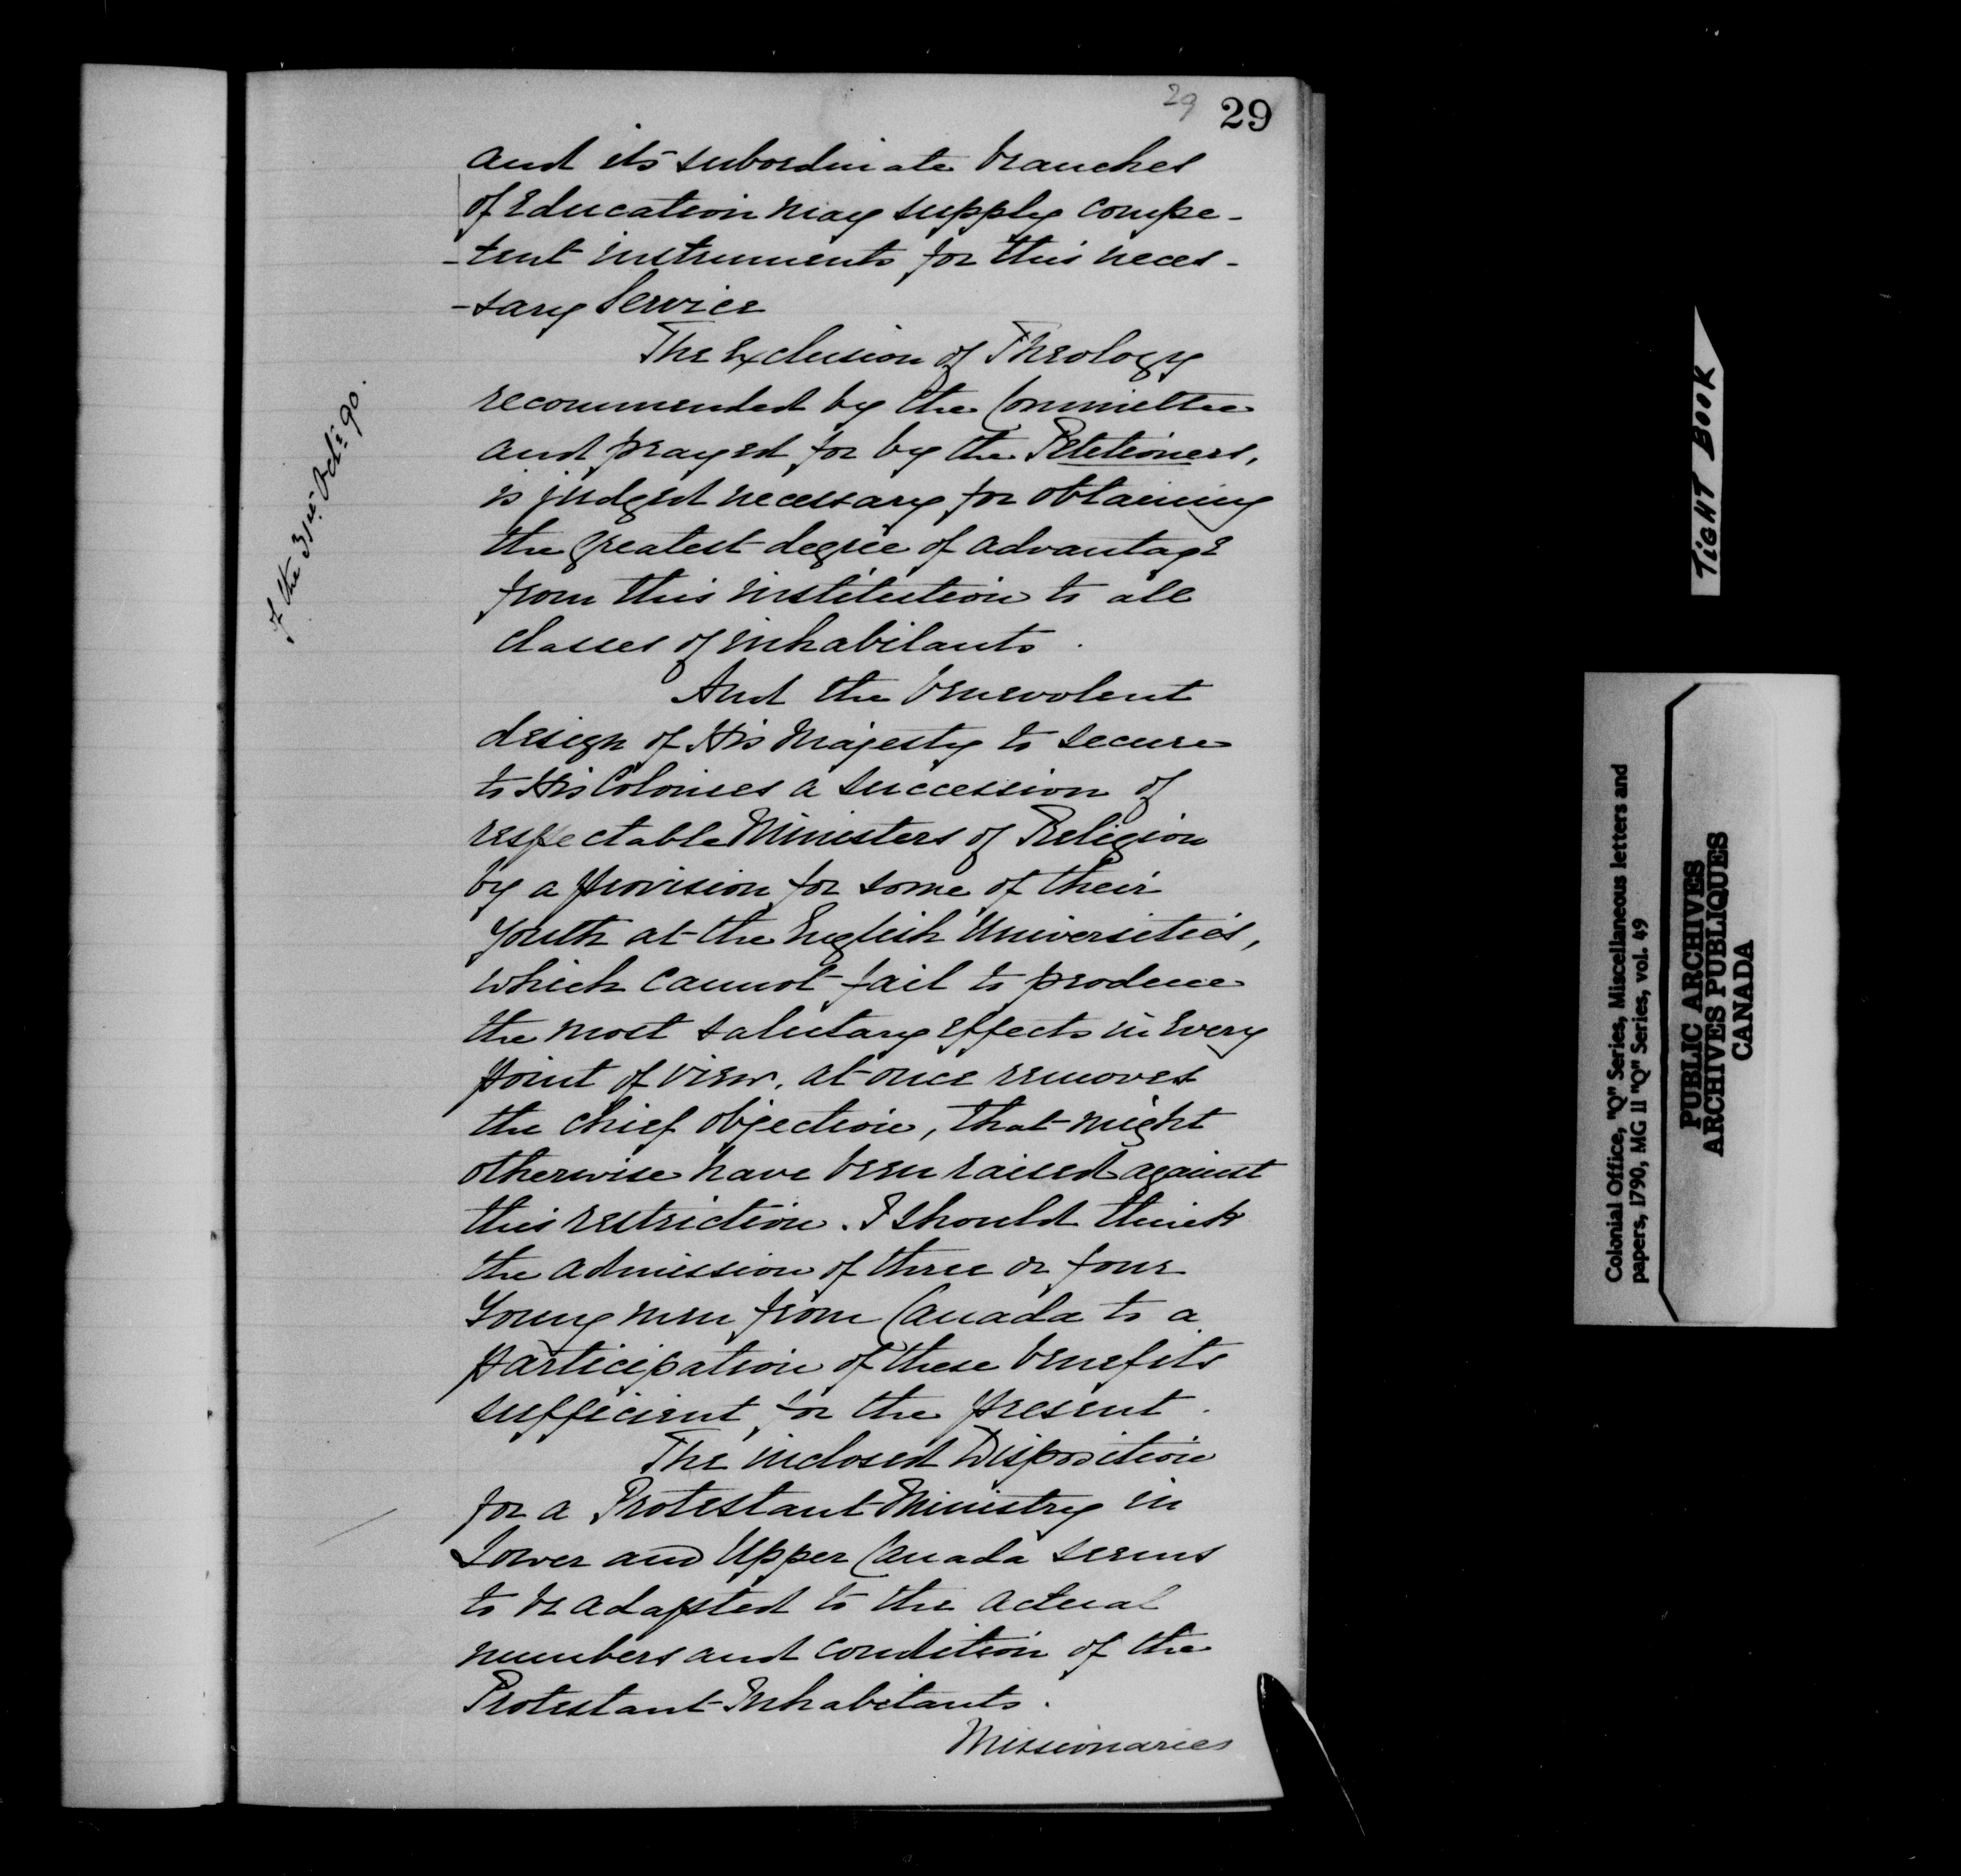 29
29
and its subordinate branches
of Education may supply compe-
-tent instruments for this neces-
-sary Service
The Exclusion of Theology
recommended by the Committee
and prayed for by the Petetioners,
is judged necessary for obtaining
the greatest degree of advantage
from this institution to all
classes of inhabitants.
And the benevolent
design of His Majesty to secure
to His Colonies a succession of
respectable Ministers of Religion
by a provision for some of their
youth at the English Universities,
which cannot fail to produce
the most salutary effects in every
point of view, at once removes
the chief objection, that might
otherwise have been raised against
this restriction. I should think
the admission of three or four
Young men from Canada to a
participation of these benefits
sufficient for the present.
The inclosed Disposition
for a Protestant Ministry in
Lower and Upper Canada seems
to be adapted to the actual
numbers and condition of the
Protestant Inhabitants.
Missionaries
of the 31st Octr 90.
TIGHT BOOK
Colonial Office, "Q" Series, Miscellaneous letters and
papers, 1790, MG 11 "Q" Series, vol. 49
PUBLIC ARCHIVES
ARCHIVES PUBLIQUES
CANADA